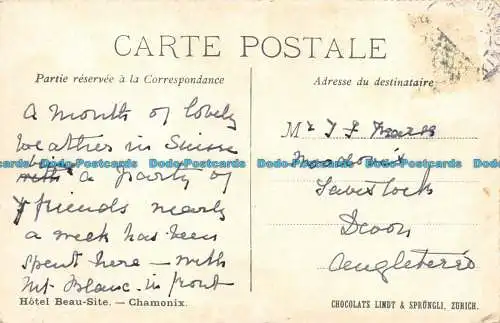 CARTE POSTALE
Partie réservée à la Correspondance
Adresse du destinataire
A month of lovely
weather in Suisse
with a party of
friends nearly
a week has been
spent here – with
Mt Blanc in front
Hôtel Beau-Site. — Chamonix.
Mr
Tavistock
Devon
Angleterre
CHOCOLATS LINDT & SPRÜNGLI, ZURICH.
Dodo-Postcards Dodo-Postcards Dodo-Postcards Dodo-Postcards